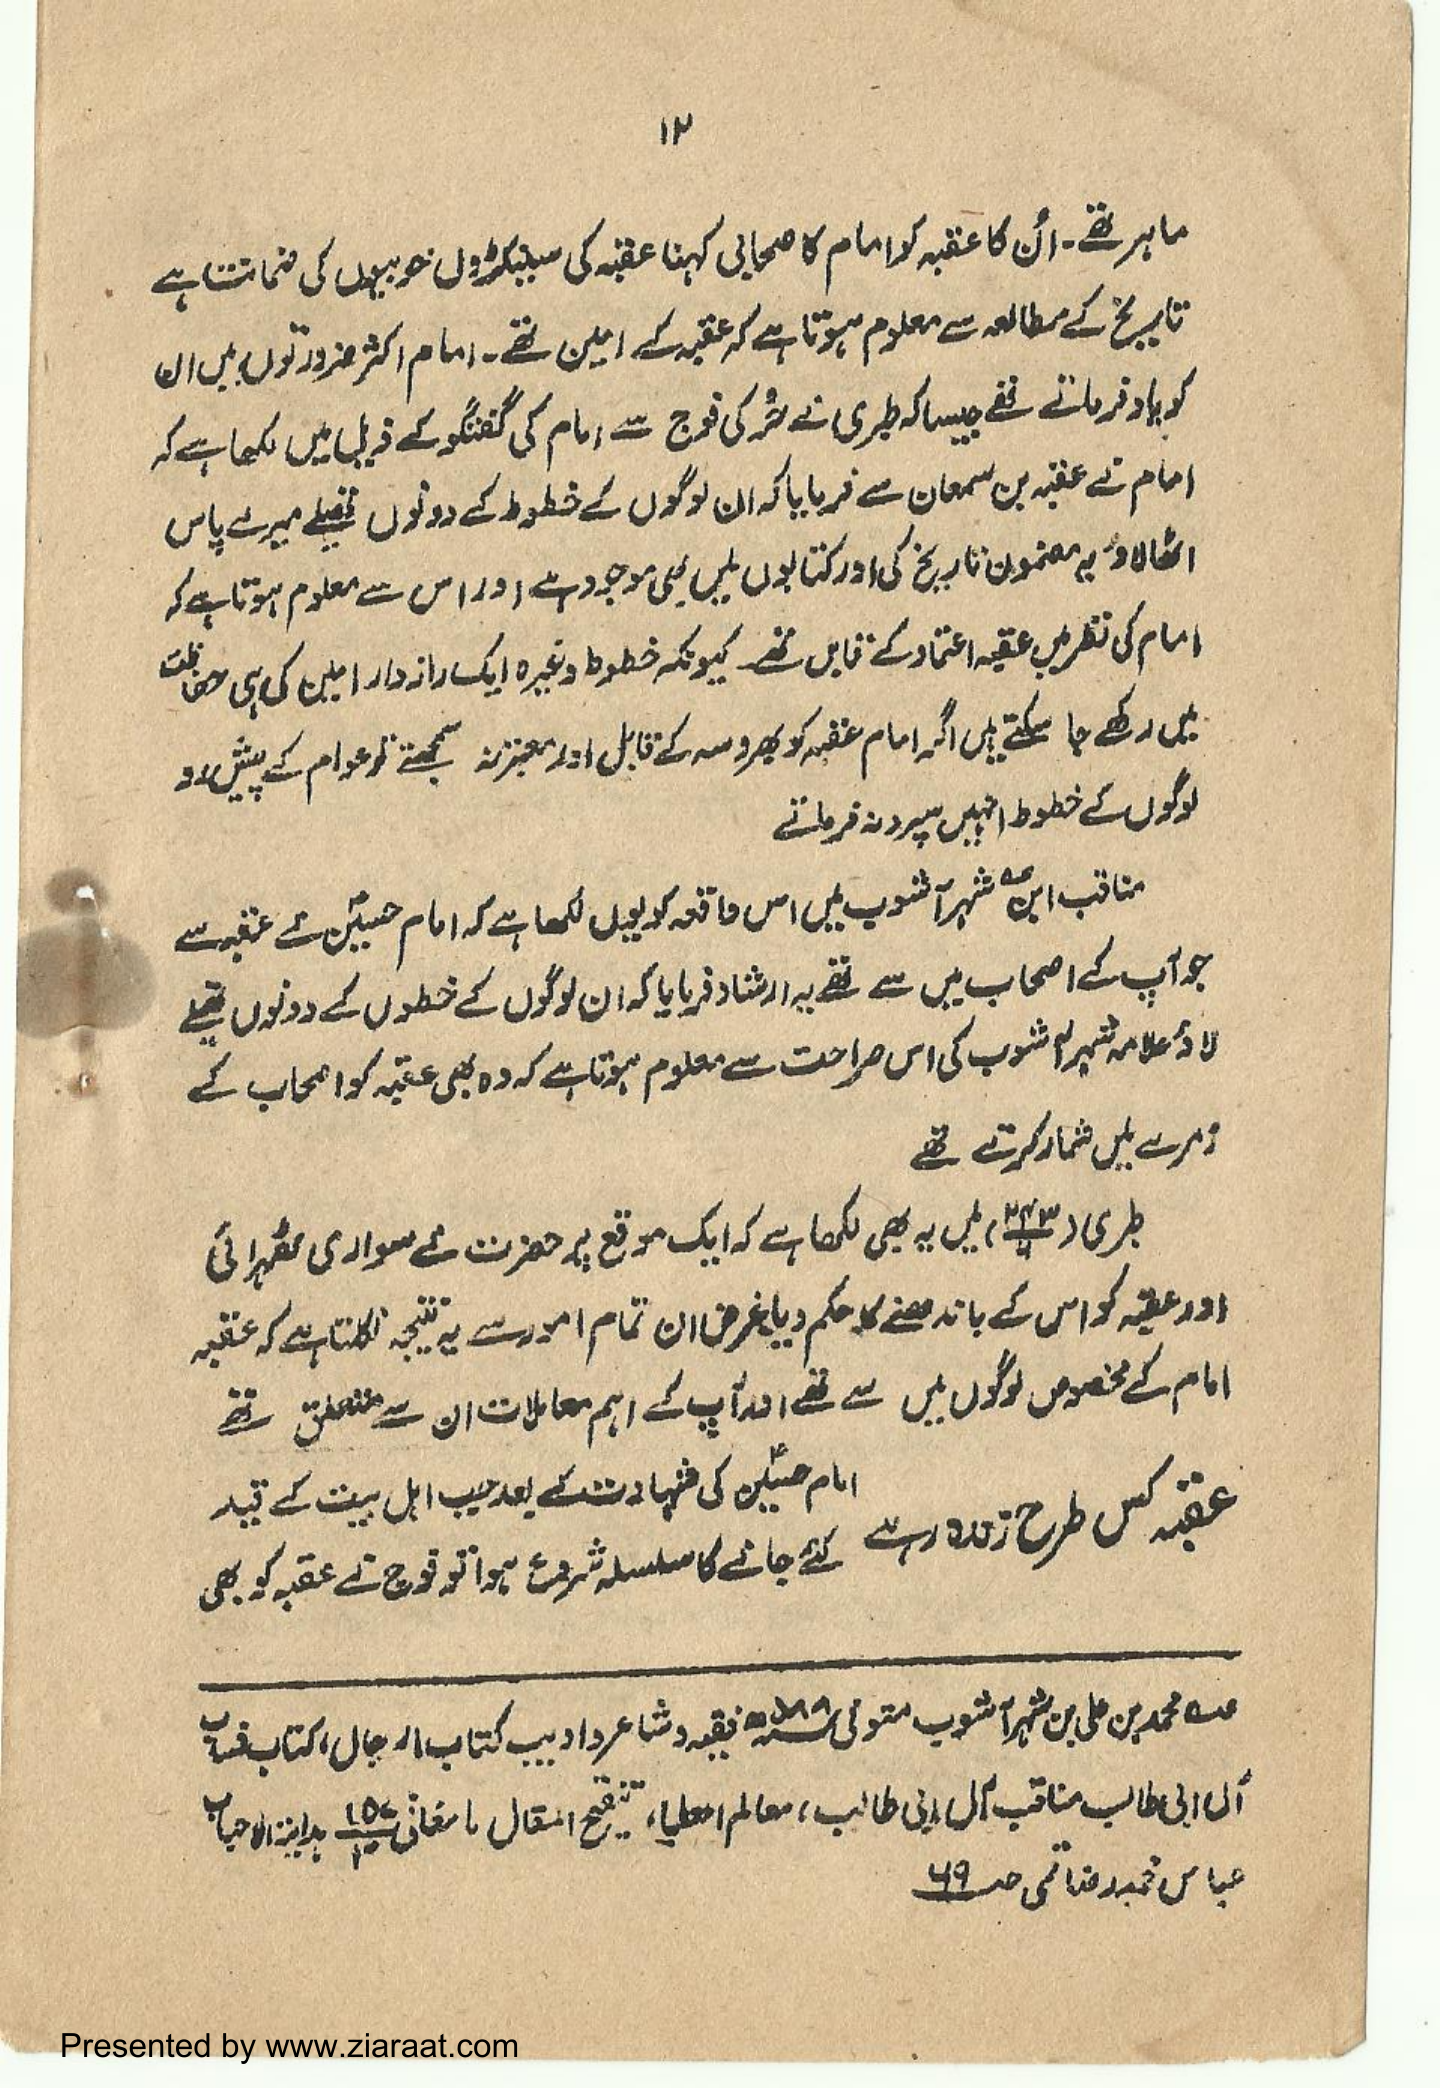 ۱۲
ماہر تھے۔ اُن کا عقبہ کو امام کا صحابی کہنا عقبہ کی سینکڑوں خوبیوں کی ضمانت ہے
تاریخ کے مطالعہ سے معلوم ہوتا ہے کہ عقبہ کے امین تھے۔ امام اکثر ضرورتوں میں ان
کو یاد فرماتے تھے جیسا کہ طبری نے حُر کی فوج سے امام کی گفتگو کے ذیل میں لکھا ہے کہ
امام نے عقبہ بن سمعان سے فرمایا کہ ان لوگوں کے خطوط کے دونوں تھیلے میرے پاس
اٹھا لاؤ یہ مضمون تاریخ کی اور کتابوں میں بھی موجود ہے اور اس سے معلوم ہوتا ہے کہ
امام کی نظر میں عقبہ اعتماد کے قابل تھے کیونکہ خطوط وغیرہ ایک رازدار امین کی ہی حفاظت
میں رکھے جا سکتے ہیں اگر امام عقبہ کو بھروسہ کے قابل اور معتبر نہ سمجھتے تو عوام کے پیش رو
لوگوں کے خطوط انہیں سپرد نہ فرماتے
مناقب ابن شہر آشوب میں اس واقعہ کو یوں لکھا ہے کہ امام حسینؑ نے عقبہ سے
جو آپ کے اصحاب میں سے تھے یہ ارشاد فرمایا کہ ان لوگوں کے خطوں کے دونوں تھیلے
لاؤ علامہ شہر آشوب کی اس صراحت سے معلوم ہوتا ہے کہ وہ بھی عقبہ کو اصحاب کے
زمرے میں شمار کرتے تھے
طبری (۲۴۳/۶) میں یہ بھی لکھا ہے کہ ایک موقع پر حضرت نے سواری ٹھہرائی
اور عقبہ کو اس کے باندھنے کا حکم دیا غرض ان تمام امور سے یہ نتیجہ نکلتا ہے کہ عقبہ
امام کے مخصوص لوگوں میں سے تھے اور آپ کے اہم معاملات ان سے متعلق تھے
عقبہ کس طرح زندہ رہے
امام حسینؑ کی شہادت کے بعد جب اہل بیت کے قید
کئے جانے کا سلسلہ شروع ہوا تو فوج نے عقبہ کو بھی
عہ محمد بن علی بن شہر آشوب متوفی ۵۸۸ھ فقیہ و شاعر و ادیب کتاب الرجال، کتاب
آل ابی طالب مناقب آل ابی طالب، معالم العلماء، تنقیح المقال مامقانی ۱۵۷/۳ ہدایۃ الاحباب
عباس محمد رضا قمی صـ ۶۹
Presented by www.ziaraat.com